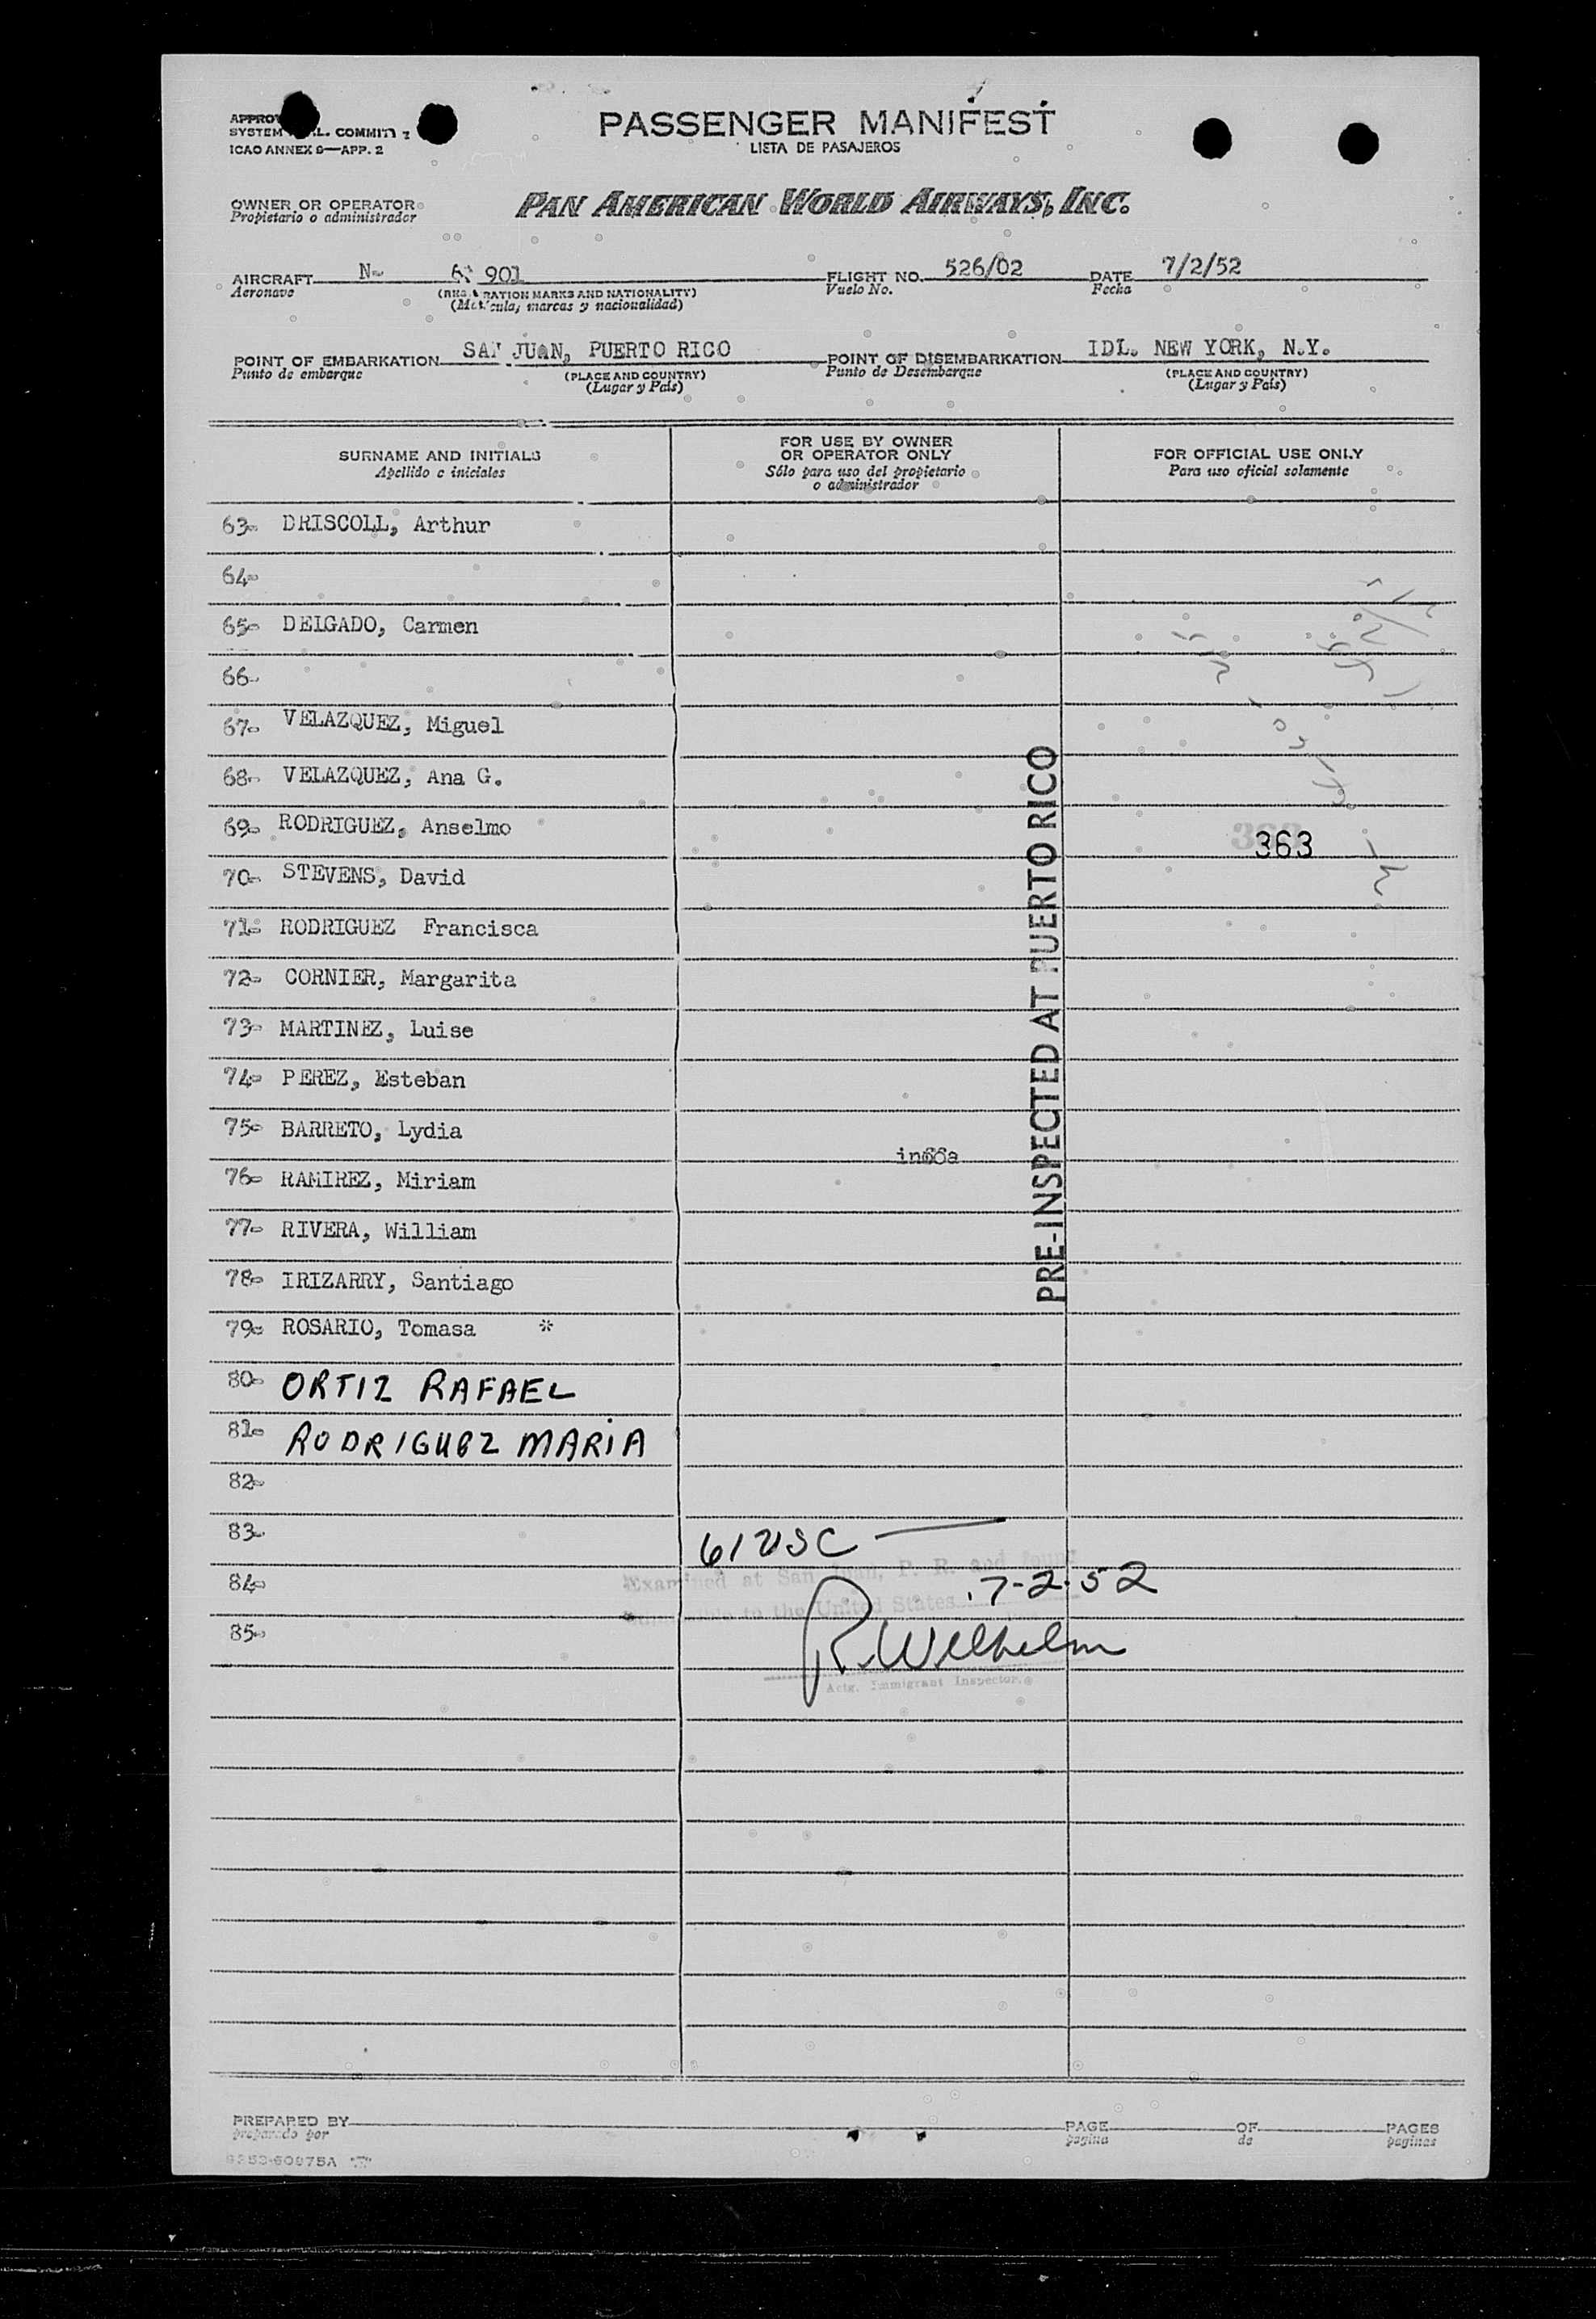 PASSENGER MANIFEST
LISTA DE PASAJEROS
SYSTEM
ICAO ANNEX 9—APP. 2
OWNER OR OPERATOR
Propietario o administrador
PAN AMERICAN WORLD AIRWAYS, INC.
AIRCRAFT N- 901 FLIGHT NO. 526/02 DATE 7/2/52
Aeronave Vuelo No. Fecha
MARKS AND NATIONALITY)
marcas y nacionalidad)
POINT OF EMBARKATION SAN JUAN, PUERTO RICO POINT OF DISEMBARKATION IDL. NEW YORK, N.Y.
Punto de embarque (PLACE AND COUNTRY) Punto de Desembarque (PLACE AND COUNTRY)
(Lugar y País) (Lugar y País)
SURNAME AND INITIALS
Apellido e iniciales
FOR USE BY OWNER
OR OPERATOR ONLY
Sólo para uso del propietario
o administrador
FOR OFFICIAL USE ONLY
Para uso oficial solamente
63- DRISCOLL, Arthur
64-
65- DELGADO, Carmen
66-
67- VELAZQUEZ, Miguel
68- VELAZQUEZ, Ana G.
69- RODRIGUEZ, Anselmo
363
70- STEVENS, David
71- RODRIGUEZ Francisca
72- CORNIER, Margarita
73- MARTINEZ, Luise
74- PEREZ, Esteban
75- BARRETO, Lydia
76- RAMIREZ, Miriam
77- RIVERA, William
78- IRIZARRY, Santiago
79- ROSARIO, Tomasa *
PRE-INSPECTED AT PUERTO RICO
80- ORTIZ RAFAEL
81- RODRIGUEZ MARIA
82-
83-
61 USC
84-
Examined at San Juan, P. R. and found
7-2-52
to the United States
85-
R. Wilhelm
Actg. Immigrant Inspector
PREPARED BY PAGE OF PAGES
preparado por pagina de paginas